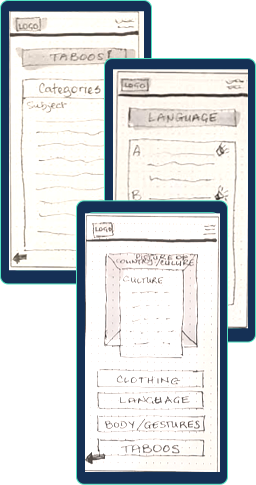 LOGO
TABOOS!
Categories
Subject
LOGO
LANGUAGE
A
B
LOGO
PICTURE OF
COUNTRY/CULTURE
CULTURE
CLOTHING
LANGUAGE
BODY/GESTURES
TABOOS